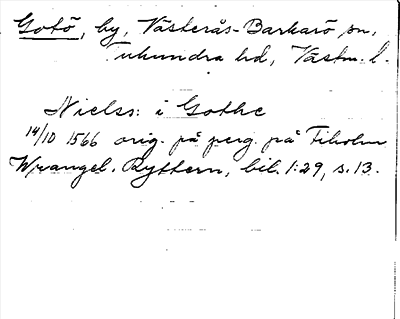 Gotö, by, Västerås-Barkarö sn,
Tuhundra hd, Västm. l.
Nielss: i Gothe
14/10 1566 orig. på perg. på Fiholm
Wrangel. Ryttern, bil. 1:29, s. 13.